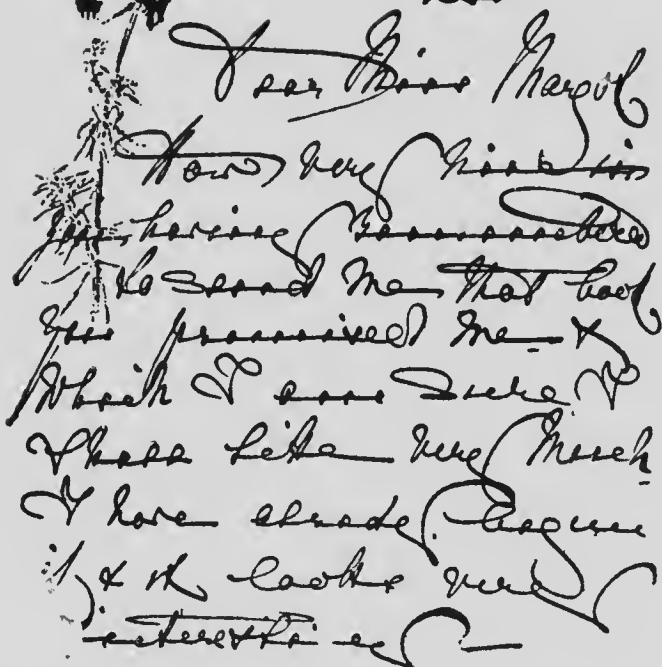 Dear Miss Margot
How very nice in
you having remembered
to send me that book
you promised me &
which I am sure I
shall like very much
I have already begun
it & it looks very
interesting —